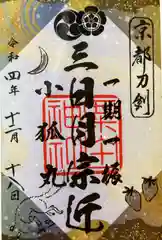 京都刀剣
一期一振
三日月宗近
小狐丸
令和四年十二月十八日